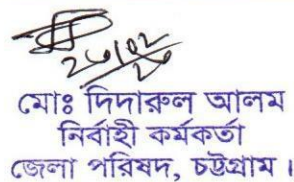 মোঃ দিদারুল আলম
নির্বাহী কর্মকর্তা
জেলা পরিষদ, চট্টগ্রাম ।